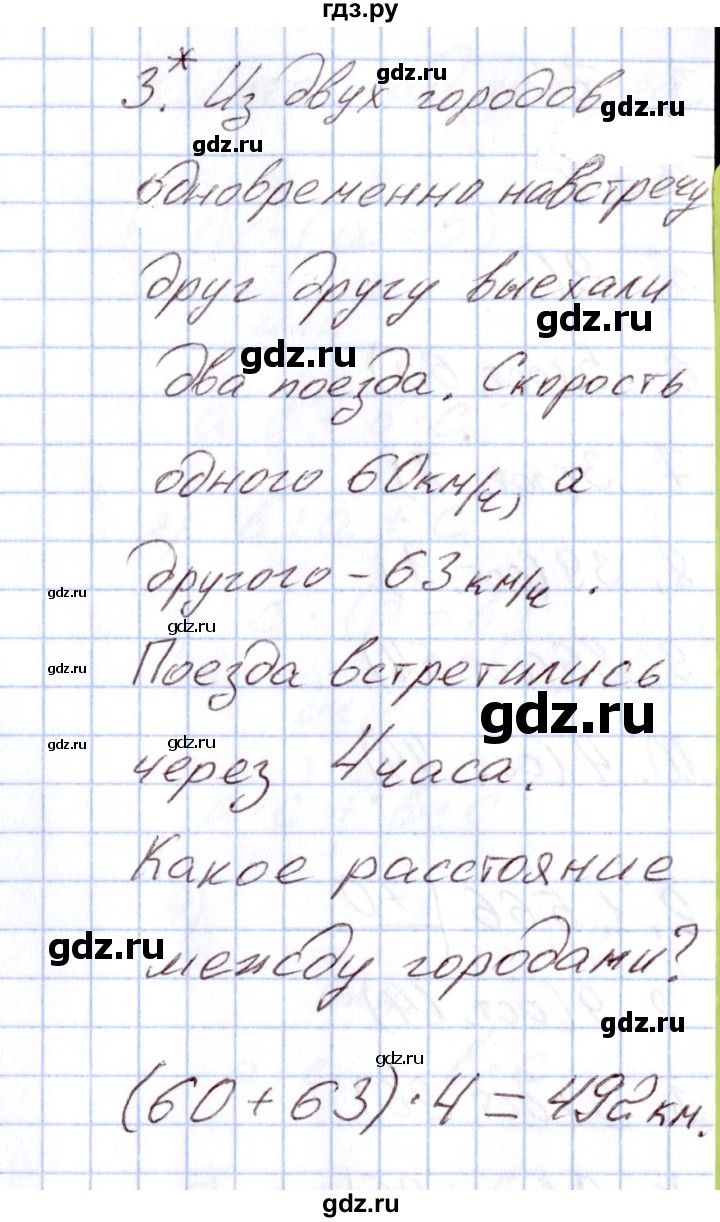 гдз.ру
3.* Из двух городов
gdz.ru
gdz.ru
gdz.ru
одновременно навстречу
друг другу выехали
gdz.ru
gdz.ru
два поезда. Скорость
одного 60км/ч, а
другого – 63 км/ч.
gdz.ru
gdz.ru
Поезда встретились
gdz.ru
gdz.ru
gdz.ru
gdz.ru
через 4 часа.
Какое расстояние
gdz.ru
между городами?
gdz.ru
gdz.ru
(60 + 63) · 4 = 492 км.
gdz.ru